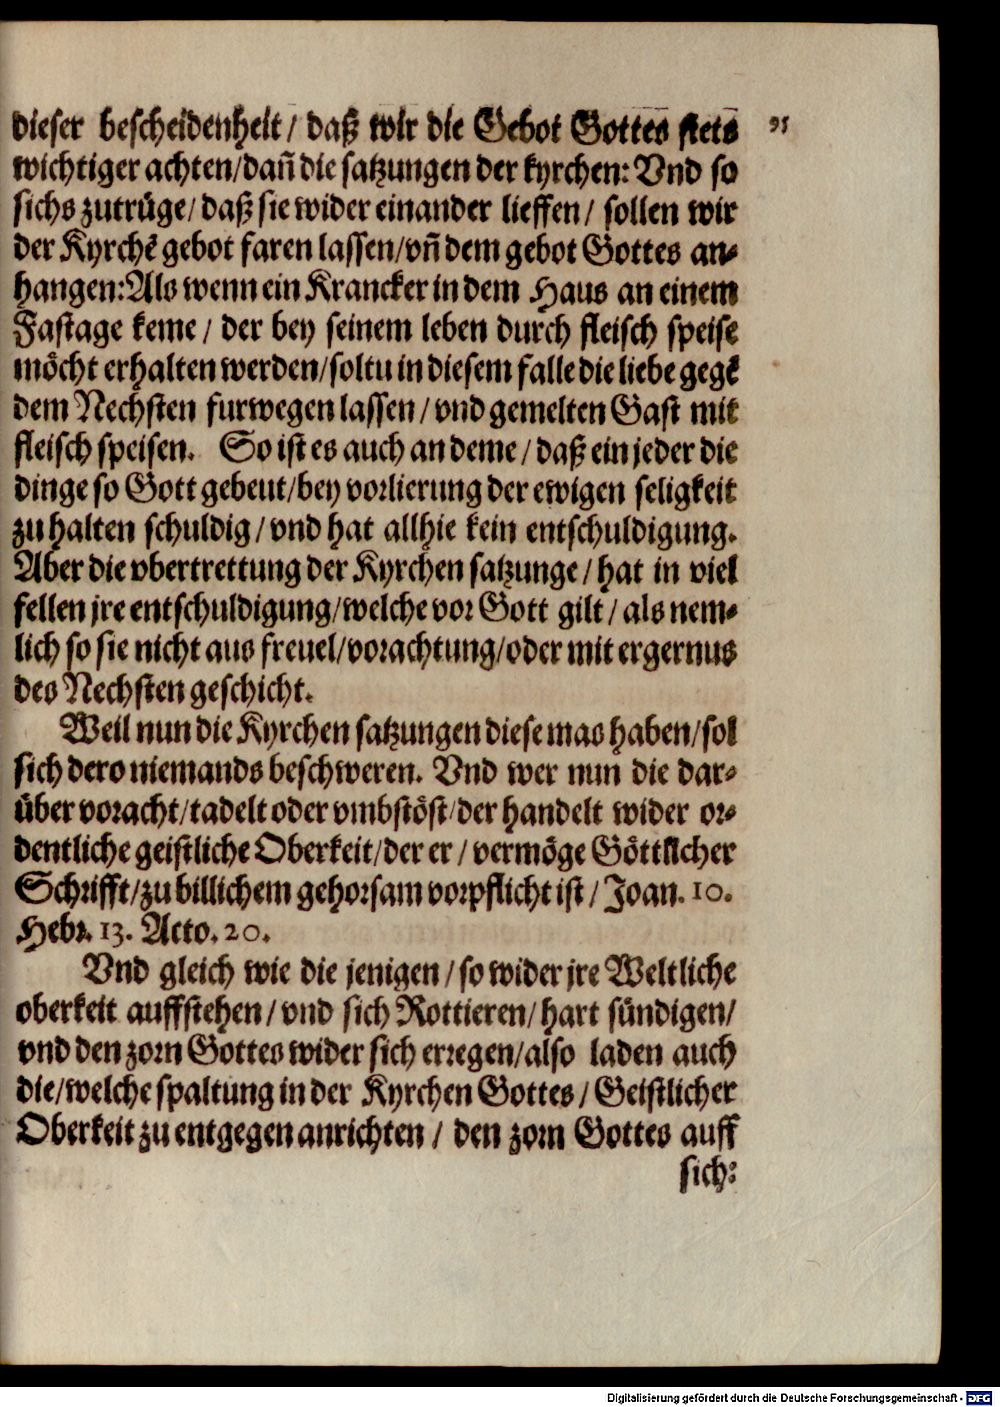 dieser bescheidenheit / daß wir die Gebot Gottes stets
wichtiger achten/dañ die satzungen der kyrchen: Vnd so
sichs zutrüge/ daß sie wider einander lieffen / sollen wir
der Kyrchẽ gebot faren lassen/vñ dem gebot Gottes an-
hangen:Als wenn ein Krancker in dem Haus an einem
Fastage keme / der bey seinem leben durch fleisch speise
möcht erhalten werden/soltu in diesem falle die liebe gegẽ
dem Nechsten furwegen lassen / vnd gemelten Gast mit
fleisch speisen. So ist es auch an deme / daß ein jeder die
dinge so Gott gebeut/bey vorlierung der ewigen seligkeit
zu halten schuldig / vnd hat allhie kein entschuldigung.
Aber die vbertrettung der Kyrchen satzunge / hat in viel
fellen jre entschuldigung/welche vor Gott gilt / als nem-
lich so sie nicht aus freuel/vorachtung/oder mit ergernus
des Nechsten geschicht.
Weil nun die Kyrchen satzungen diese mas haben/sol
sich dero niemands beschweren. Vnd wer nun die dar-
über voracht/tadelt oder vmbstöst/der handelt wider or-
dentliche geistliche Oberkeit/der er / vermöge Göttlicher
Schrifft/zu billichem gehorsam vorpflicht ist / Joan. 10.
Hebr. 13. Acto. 20.
Vnd gleich wie die jenigen / so wider jre Weltliche
oberkeit auffstehen / vnd sich Rottieren/ hart sündigen/
vnd den zorn Gottes wider sich erregen/also laden auch
die/welche spaltung in der Kyrchen Gottes / Geistlicher
Oberkeit zu entgegen anrichten / den zorn Gottes auff
sich:
Digitalisierung gefördert durch die Deutsche Forschungsgemeinschaft - DFG